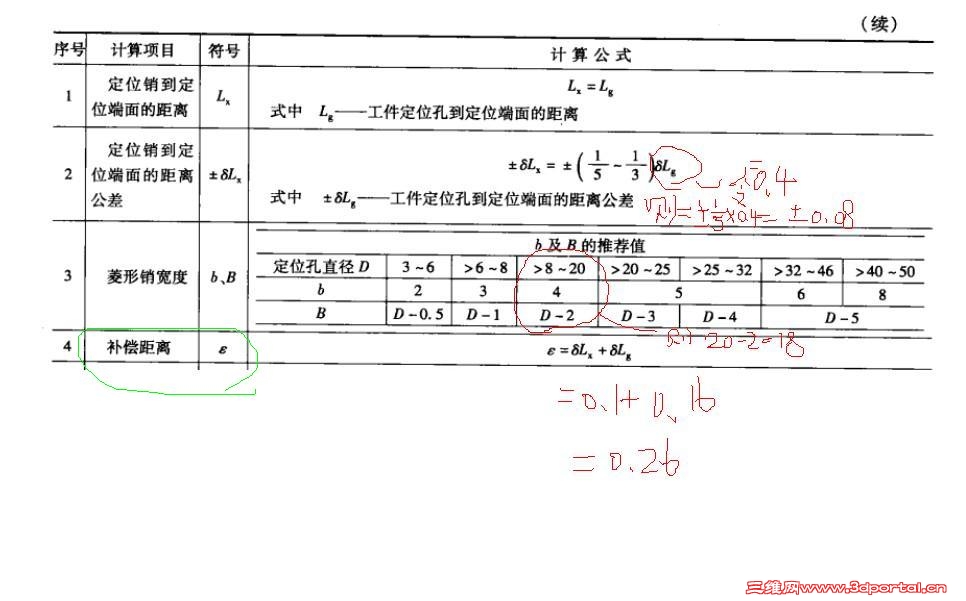 （续）
序号 计算项目 符号 计算公式
1 定位销到定位端面的距离 Lₓ Lₓ = Lg
式中 Lg——工件定位孔到定位端面的距离
2 定位销到定位端面的距离公差 ±δLₓ ±δLₓ = ±(1/5 ~ 1/3)δLg
0.4
式中 ±δLg——工件定位孔到定位端面的距离公差
则 = ±1/5×0.4 = ±0.08
3 菱形销宽度 b、B b及B的推荐值
定位孔直径 D 3~6 >6~8 >8~20 >20~25 >25~32 >32~46 >40~50
b 2 3 4 5 6 8
B D-0.5 D-1 D-2 D-3 D-4 D-5
则 20-2=18
4 补偿距离 ε ε = δLₓ + δLg
=0.1+0.16
=0.26
三维网www.3dportal.cn